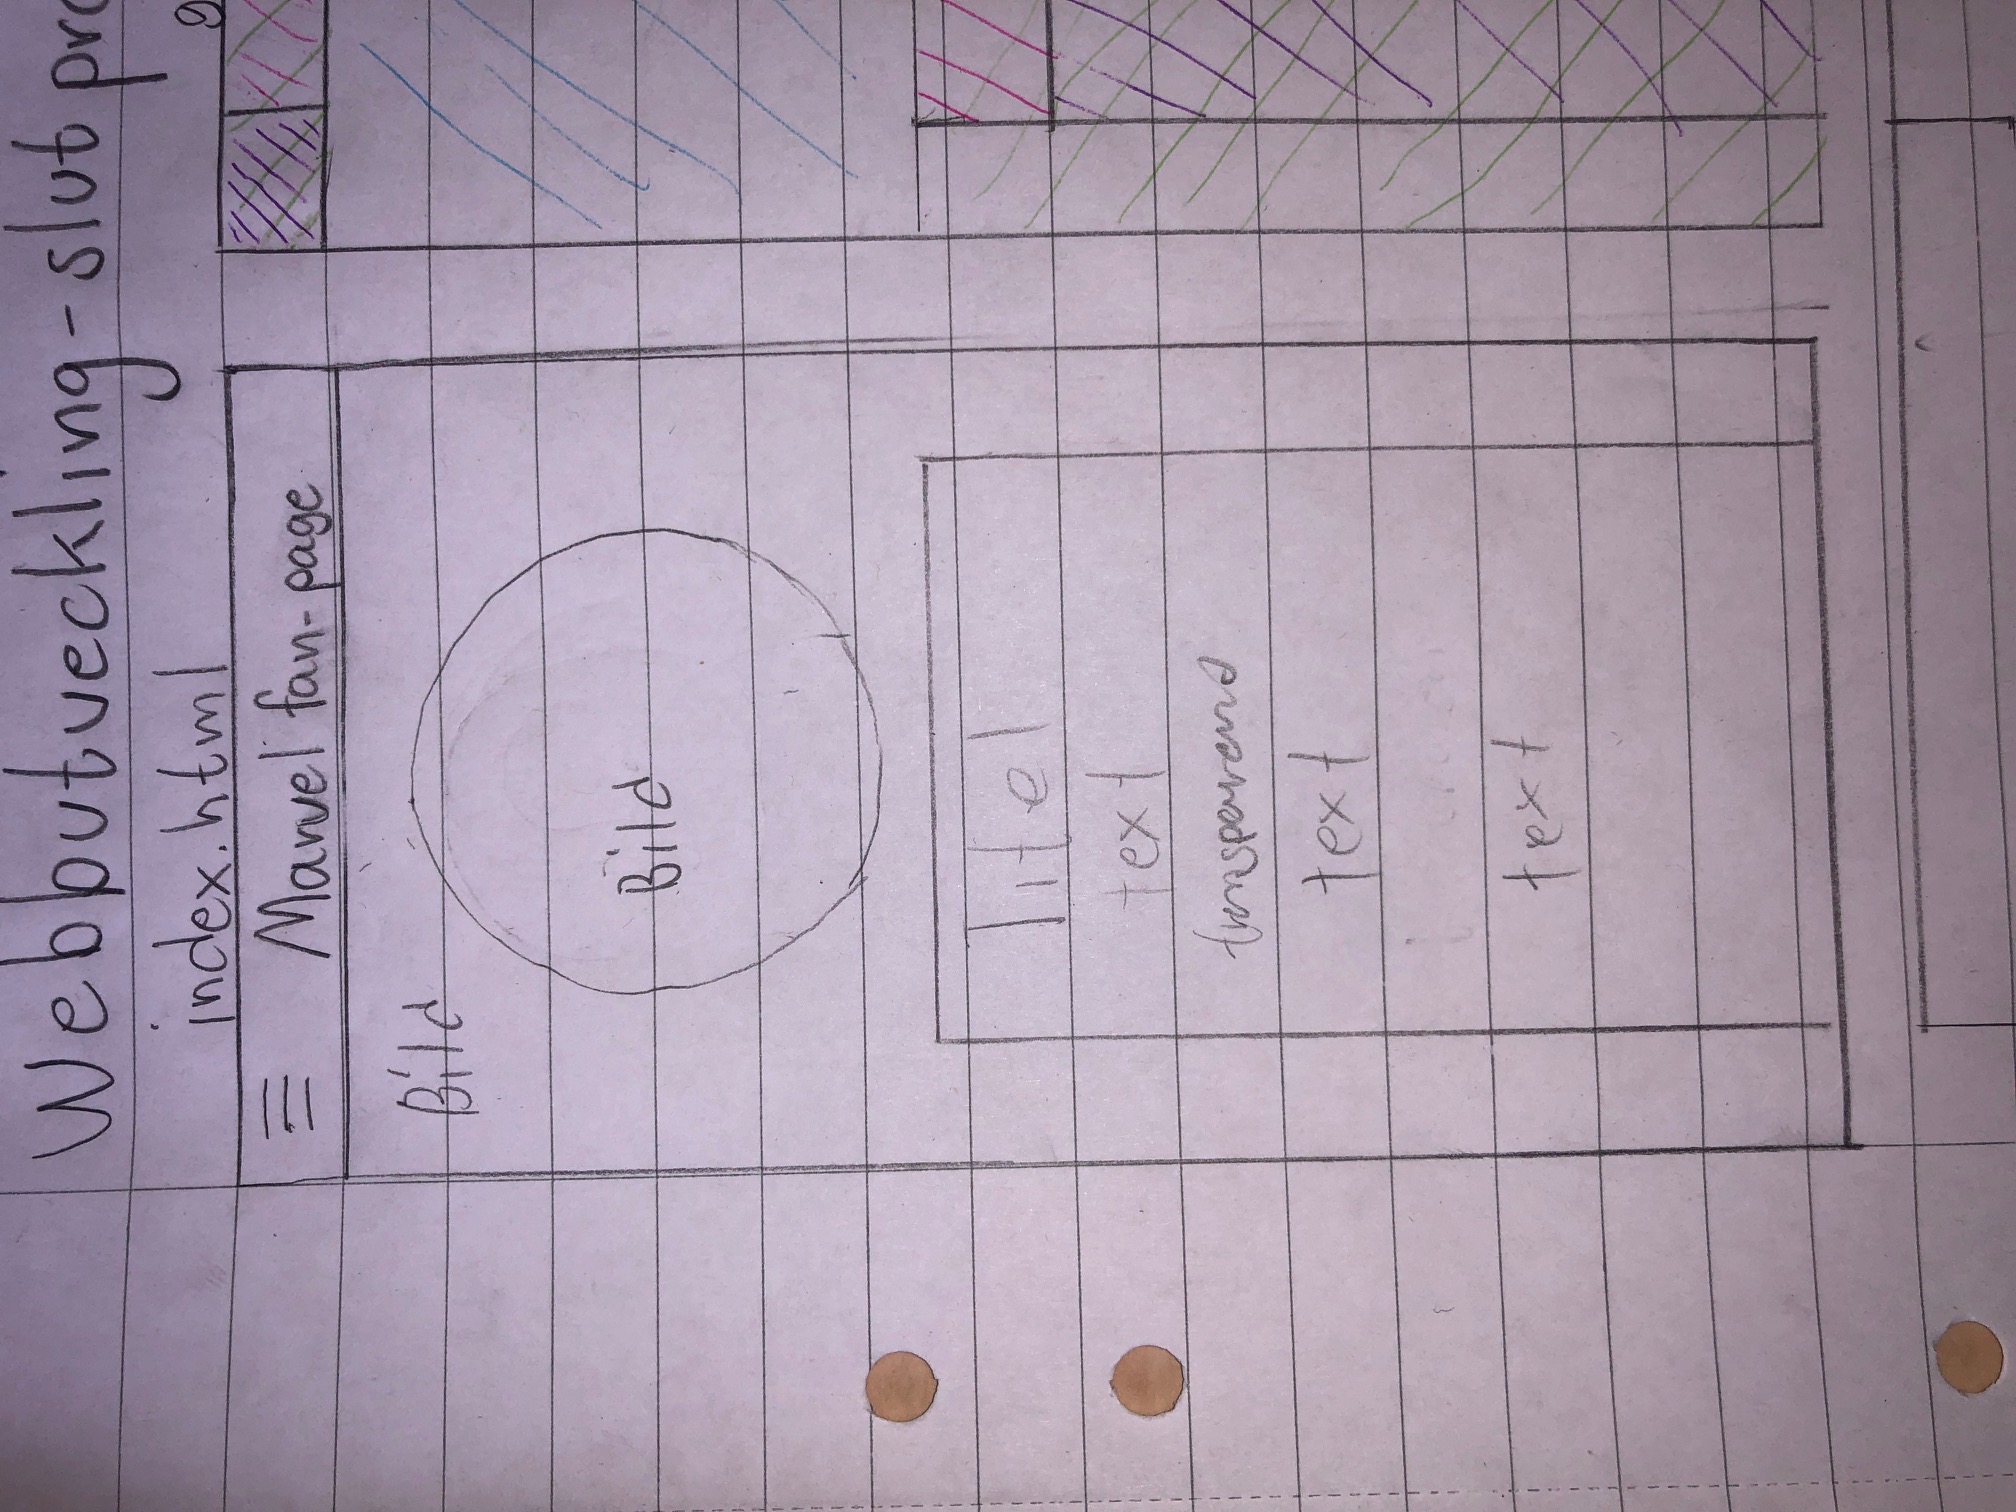 Webbutveckling - slut pro
index.html
Marvel fan-page
Bild
Bild
Titel
text
text
text